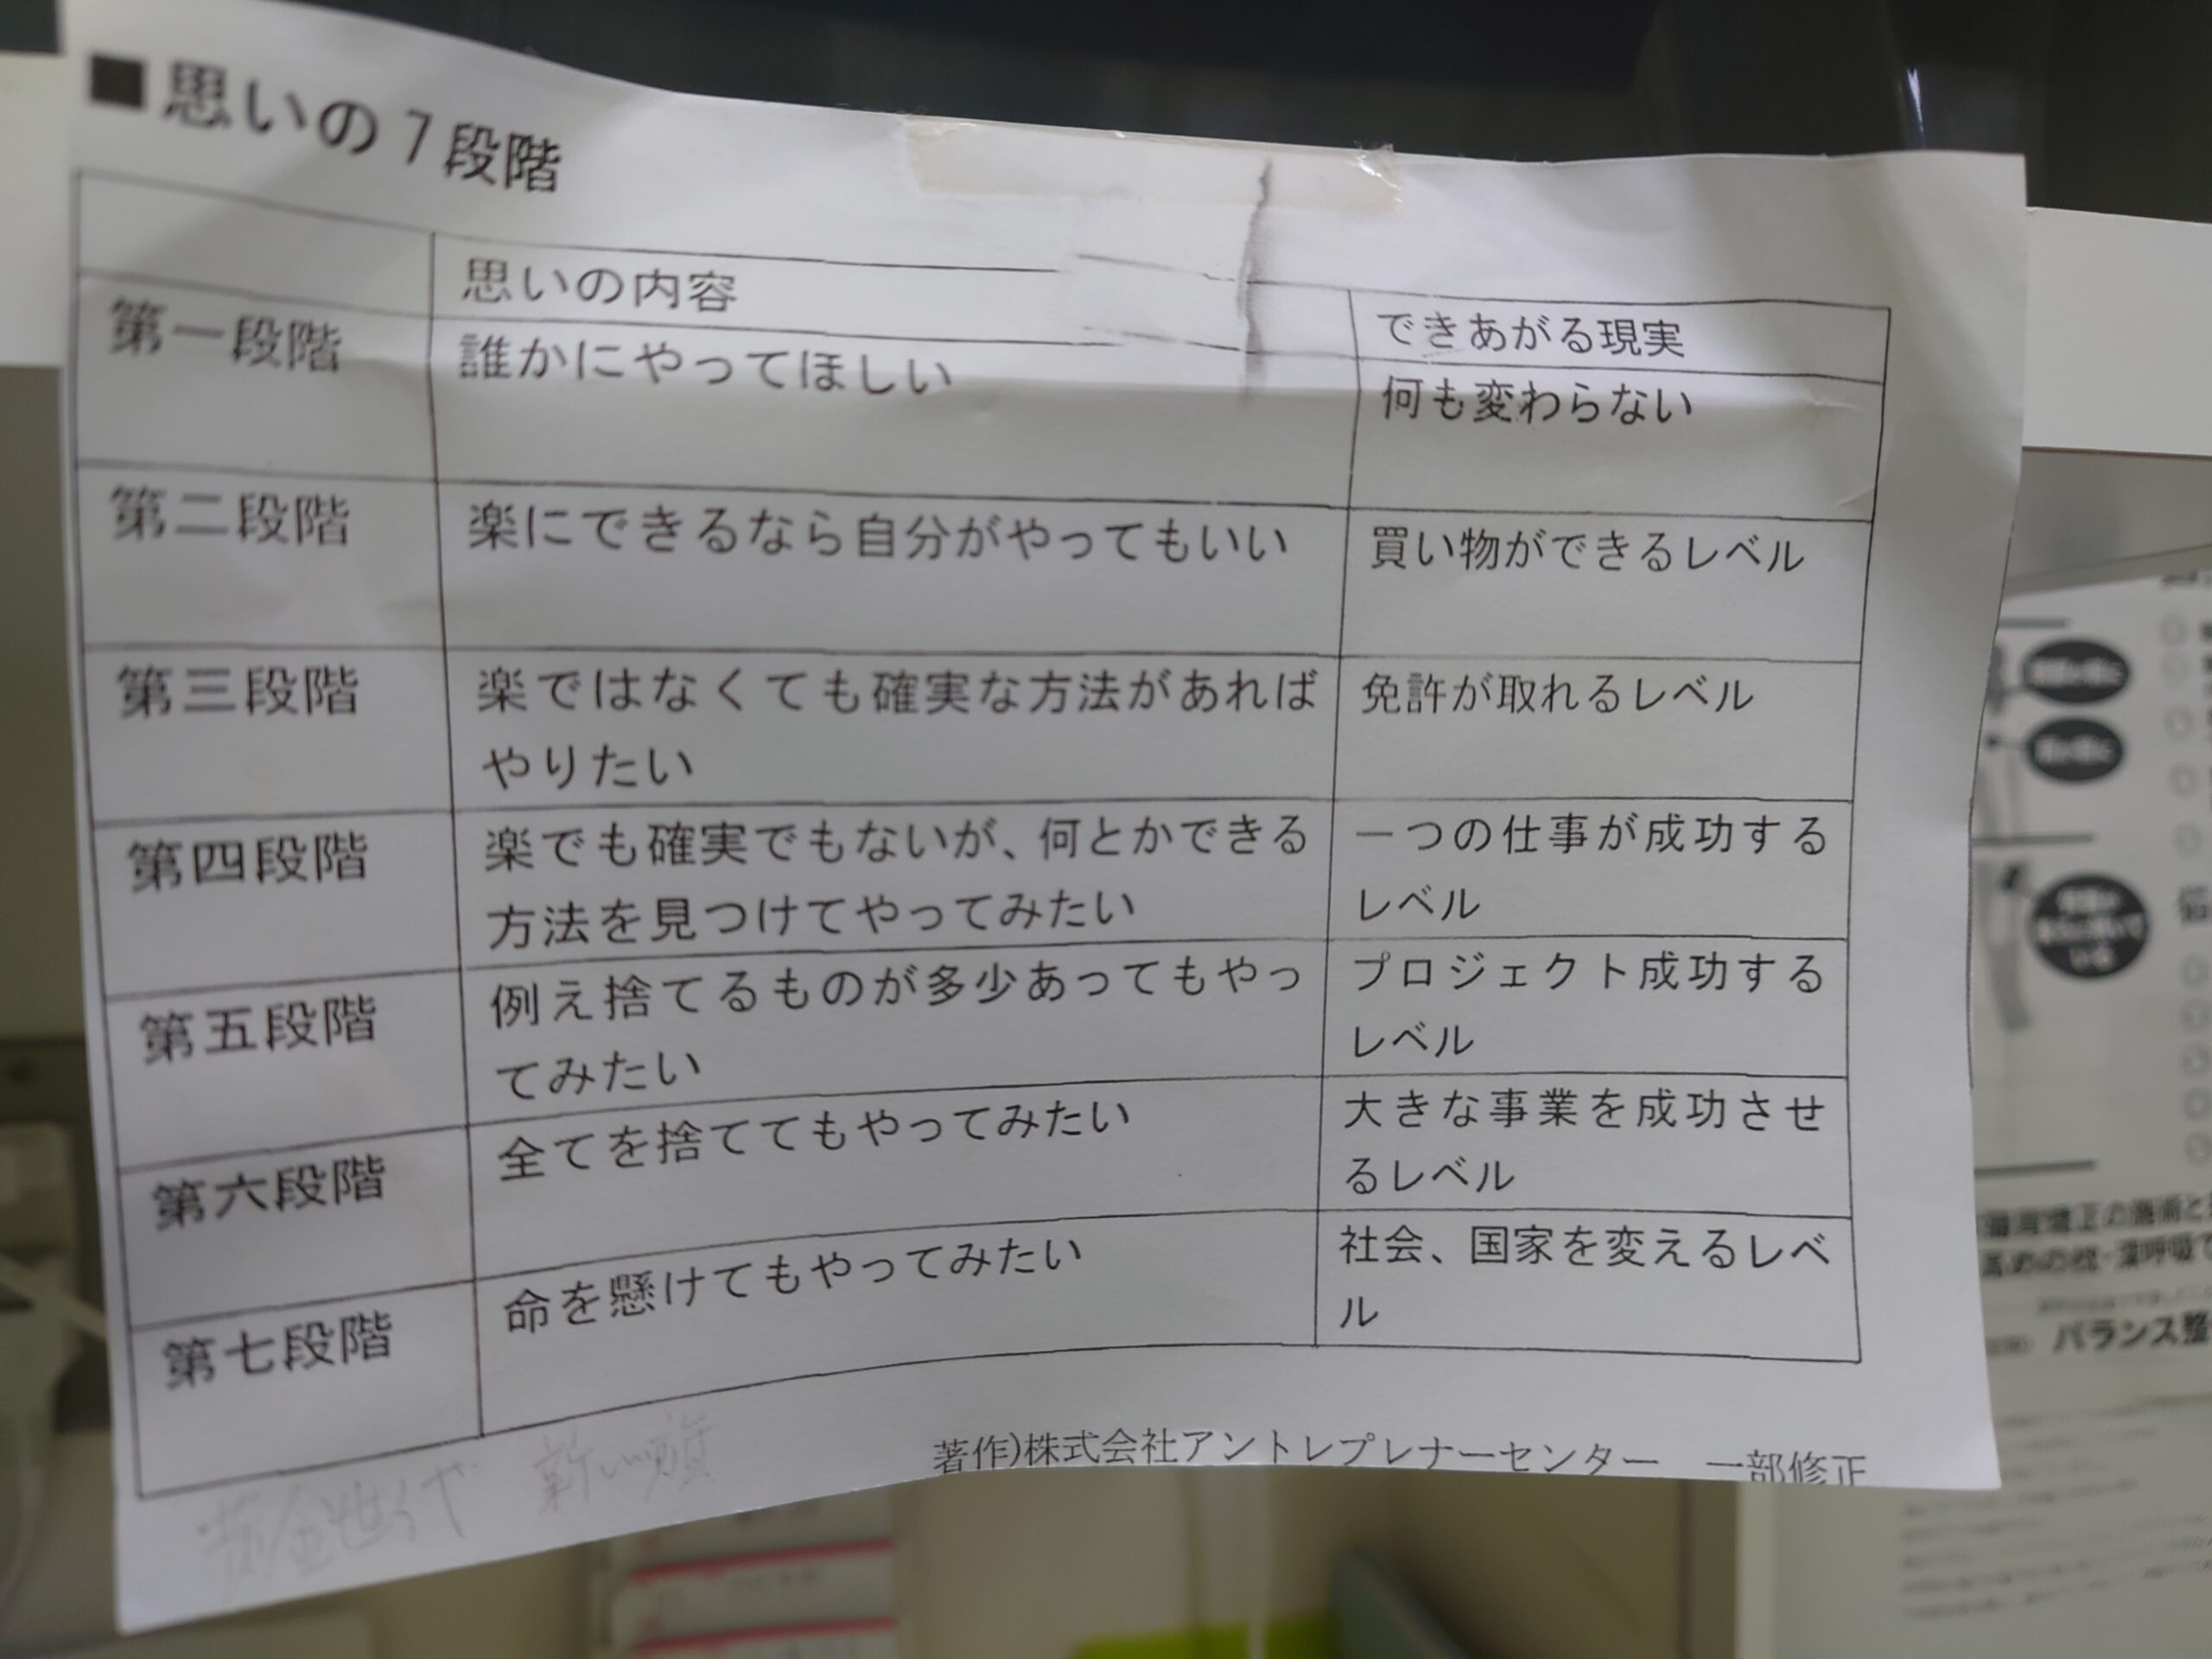 ■思いの7段階
思いの内容
できあがる現実
第一段階
誰かにやってほしい
何も変わらない
第二段階
楽にできるなら自分がやってもいい
買い物ができるレベル
第三段階
楽ではなくても確実な方法があれば
やりたい
免許が取れるレベル
第四段階
楽でも確実でもないが、何とかできる
方法を見つけてやってみたい
一つの仕事が成功する
レベル
第五段階
例え捨てるものが多少あってもやっ
てみたい
プロジェクト成功する
レベル
第六段階
全てを捨ててもやってみたい
大きな事業を成功させ
るレベル
第七段階
命を懸けてもやってみたい
社会、国家を変えるレベ
ル
著作)株式会社アントレプレナーセンター 一部修正
黄金世代 新しい旗
バランス整